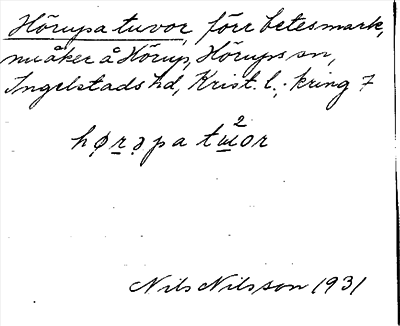 Hörupa tuvor, förr betesmark,
nu åker å Hörup, Hörups sn,
Ingelstads hd, Krist. l.; kring 7
hø̱rəpa tɯ̱²or
Nils Nilsson 1931